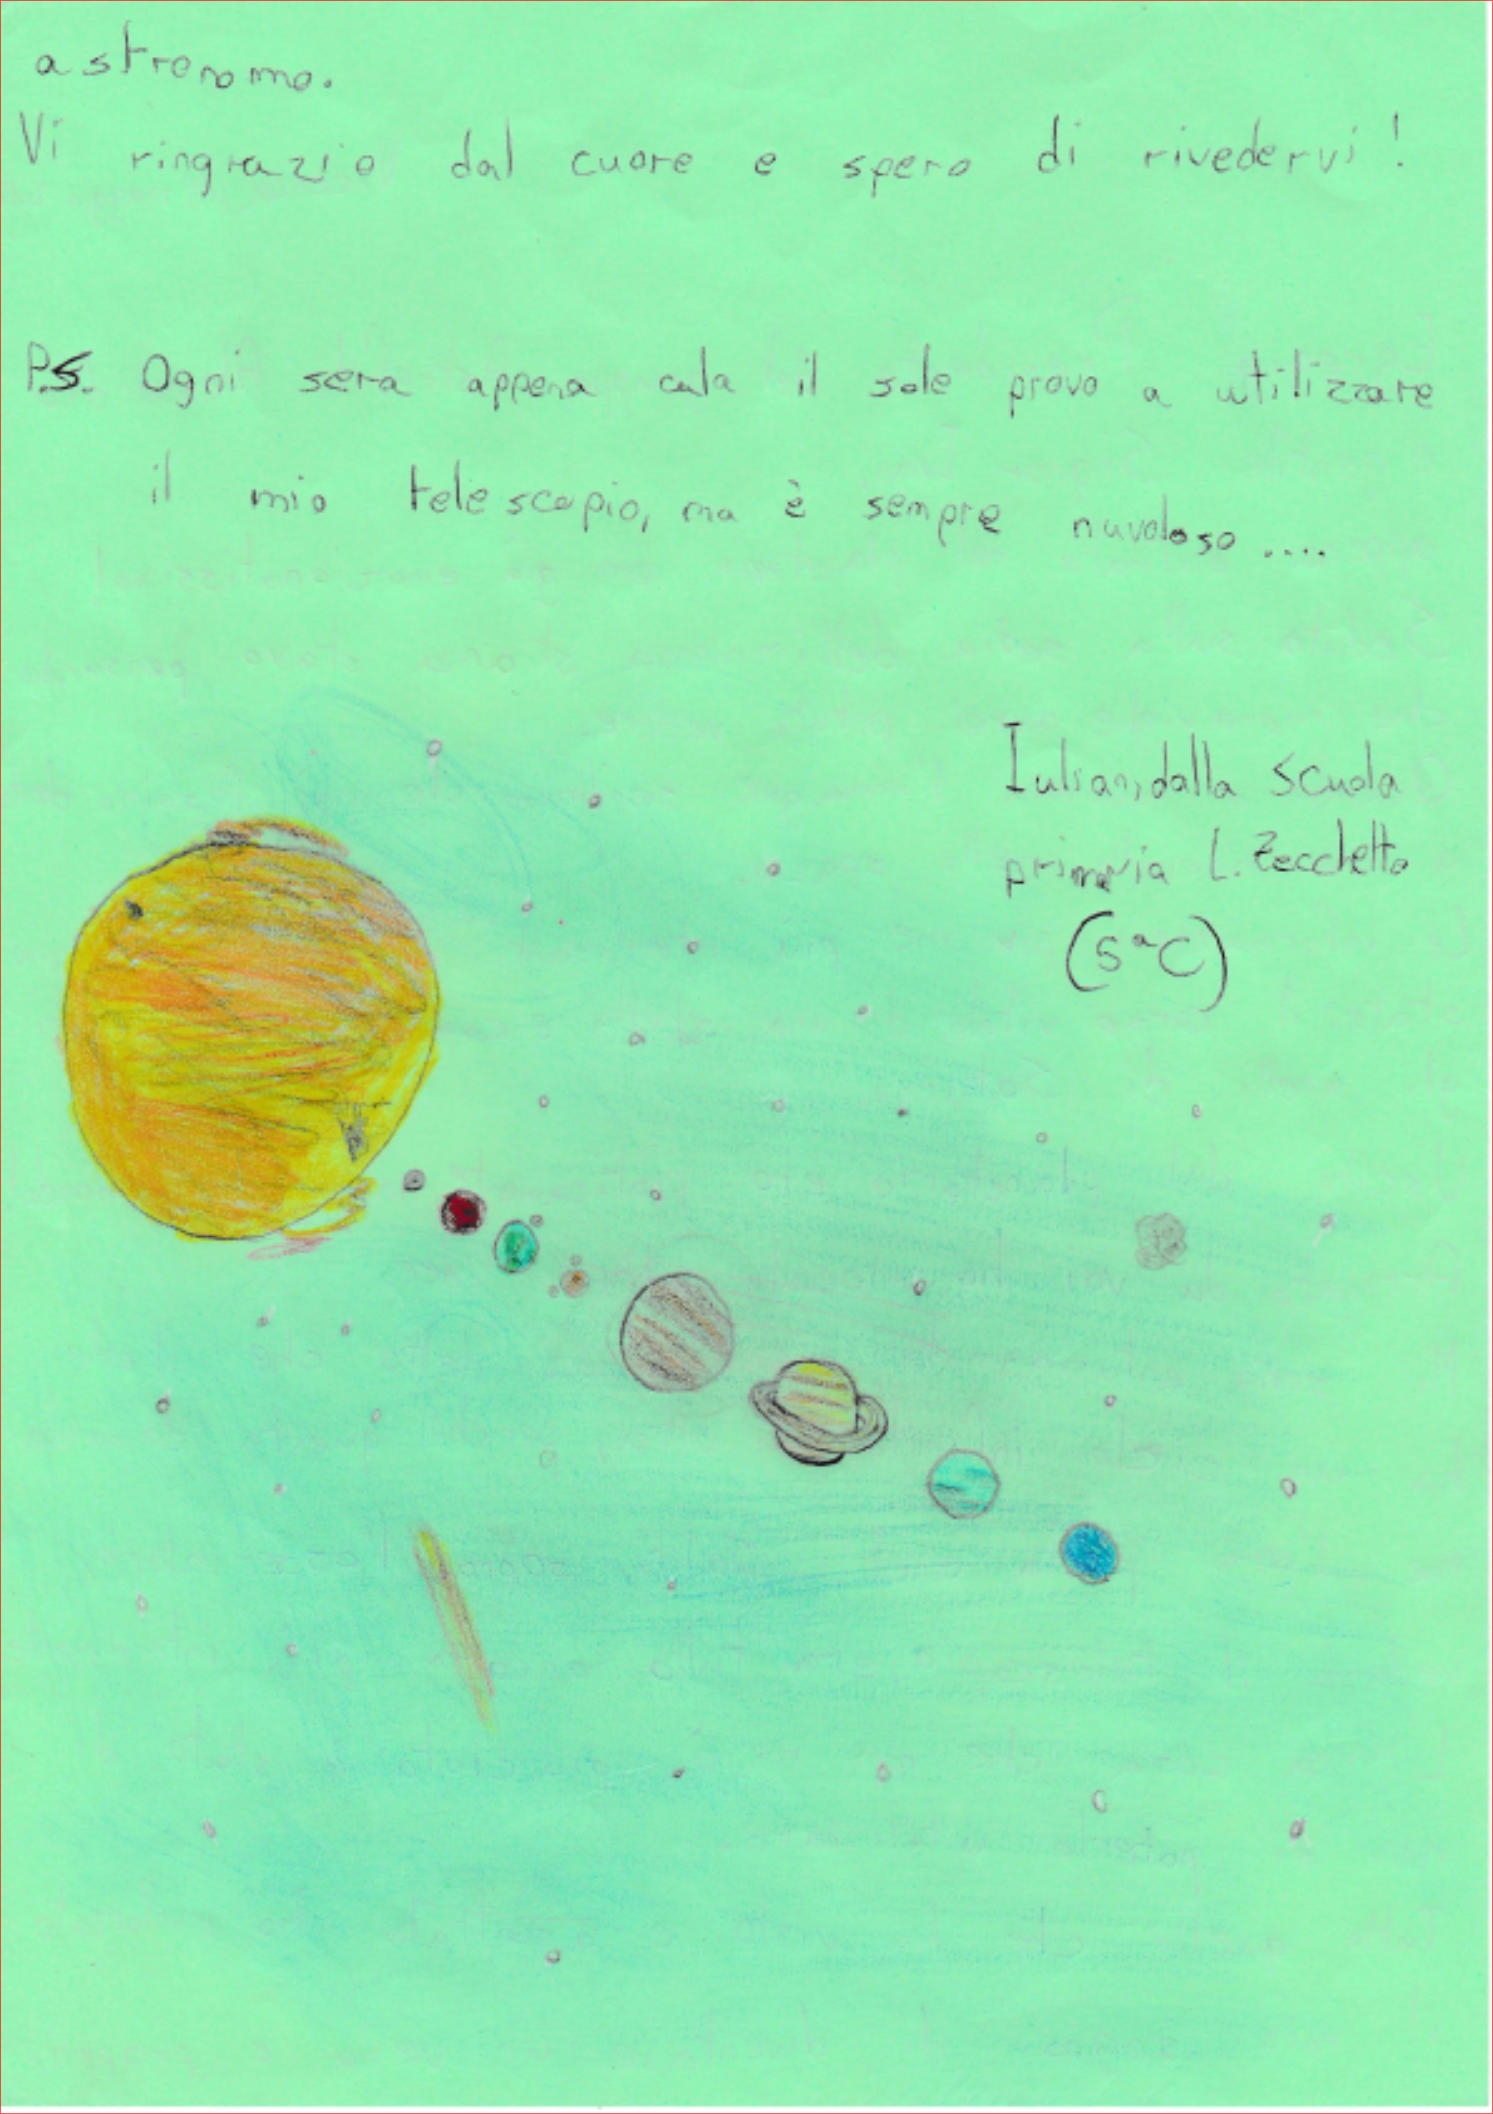 astronomo.
Vi ringrazio dal cuore e spero di rivedervi!
P.S. Ogni sera appena cala il sole provo a utilizzare
il mio telescopio, ma è sempre nuvoloso....
Iulian, dalla scuola
primaria L. Zecchetto
(5ªC)